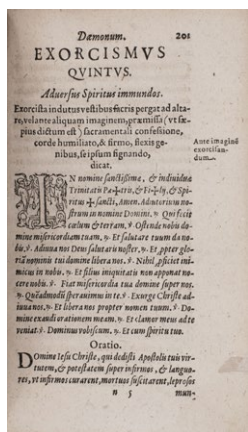 Dæmonum. 201
EXORCISMVS
QVINTVS.
Aduersus Spiritus immundos.
Exorcista indutus vestibus sacris pergat ad alta-
re, velante aliquam imaginem, præmissa (vt sæ-
pius dictum est) sacramentali confessione,
corde humiliato, & firmo, flexis ge-
nibus, se ipsum signando,
dicat.
Ante imaginē
exorcisan-
dum.
IN nomine sanctissimæ, & indiuiduæ
Trinitatis Pa✠tris, & Fi✠lij, & Spi-
ritus ✠ sancti, Amen. Adiutorium no-
strum in nomine Domini. ℟. Qui fecit
cœlum & terram. ℣. Ostende nobis do-
mine misericordiam tuam. ℟. Et salutare tuum da no-
bis. ℣. Adiuua nos Deus salutaris noster. ℟. Et ꝓpter glo-
riā nominis tui domine libera nos. ℣. Nihil ꝓficiet ini-
micus in nobis. ℟. Et filius iniquitatis non apponat no-
cere nobis. ℣. Fiat misericordia tua domine super nos.
℟. Quēadmodū sperauimus in te. ℣. Exurge Christe ad-
iuua nos. ℟. Et libera nos propter nomen tuum. ℣. Do-
mine exaudi orationem meam. ℟. Et clamor meus ad te
veniat. ℣. Dominus vobiscum. ℟. Et cum spiritu tuo.
Oratio.
Domine Iesu Christe, qui dedisti Apostolis tuis vir-
tutem, & potestatem super infirmos, & languo-
res, vt infirmos curarent, mortuos suscitarent, leprosos
n 5 mun-